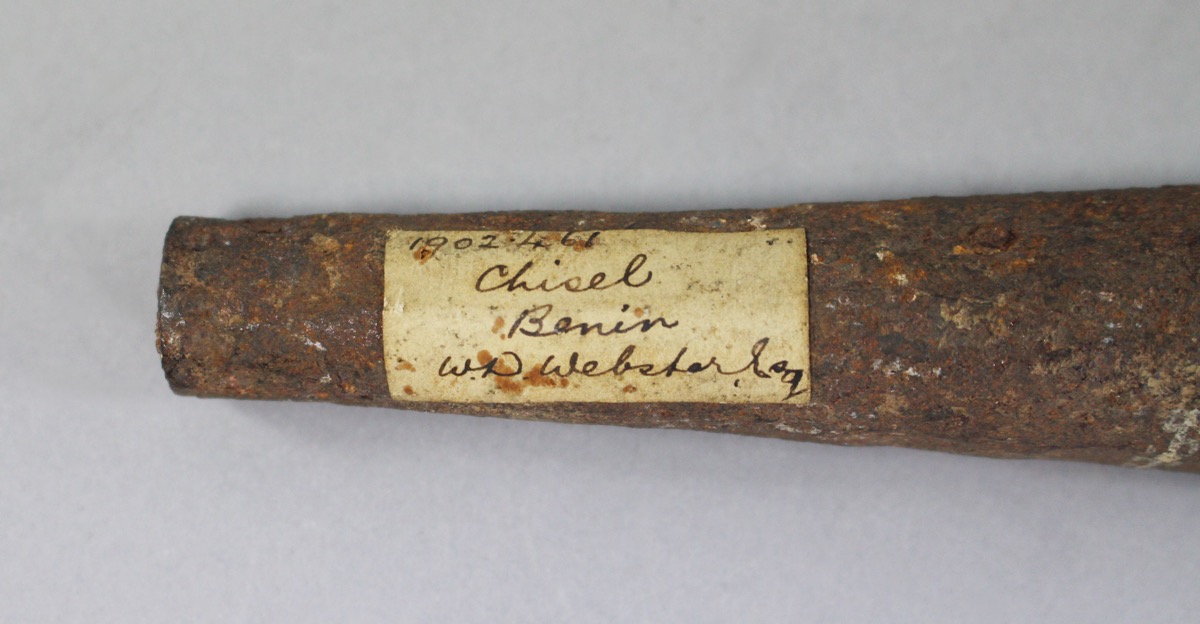 1902.461
Chisel
Benin
W.D. Webster, Esq